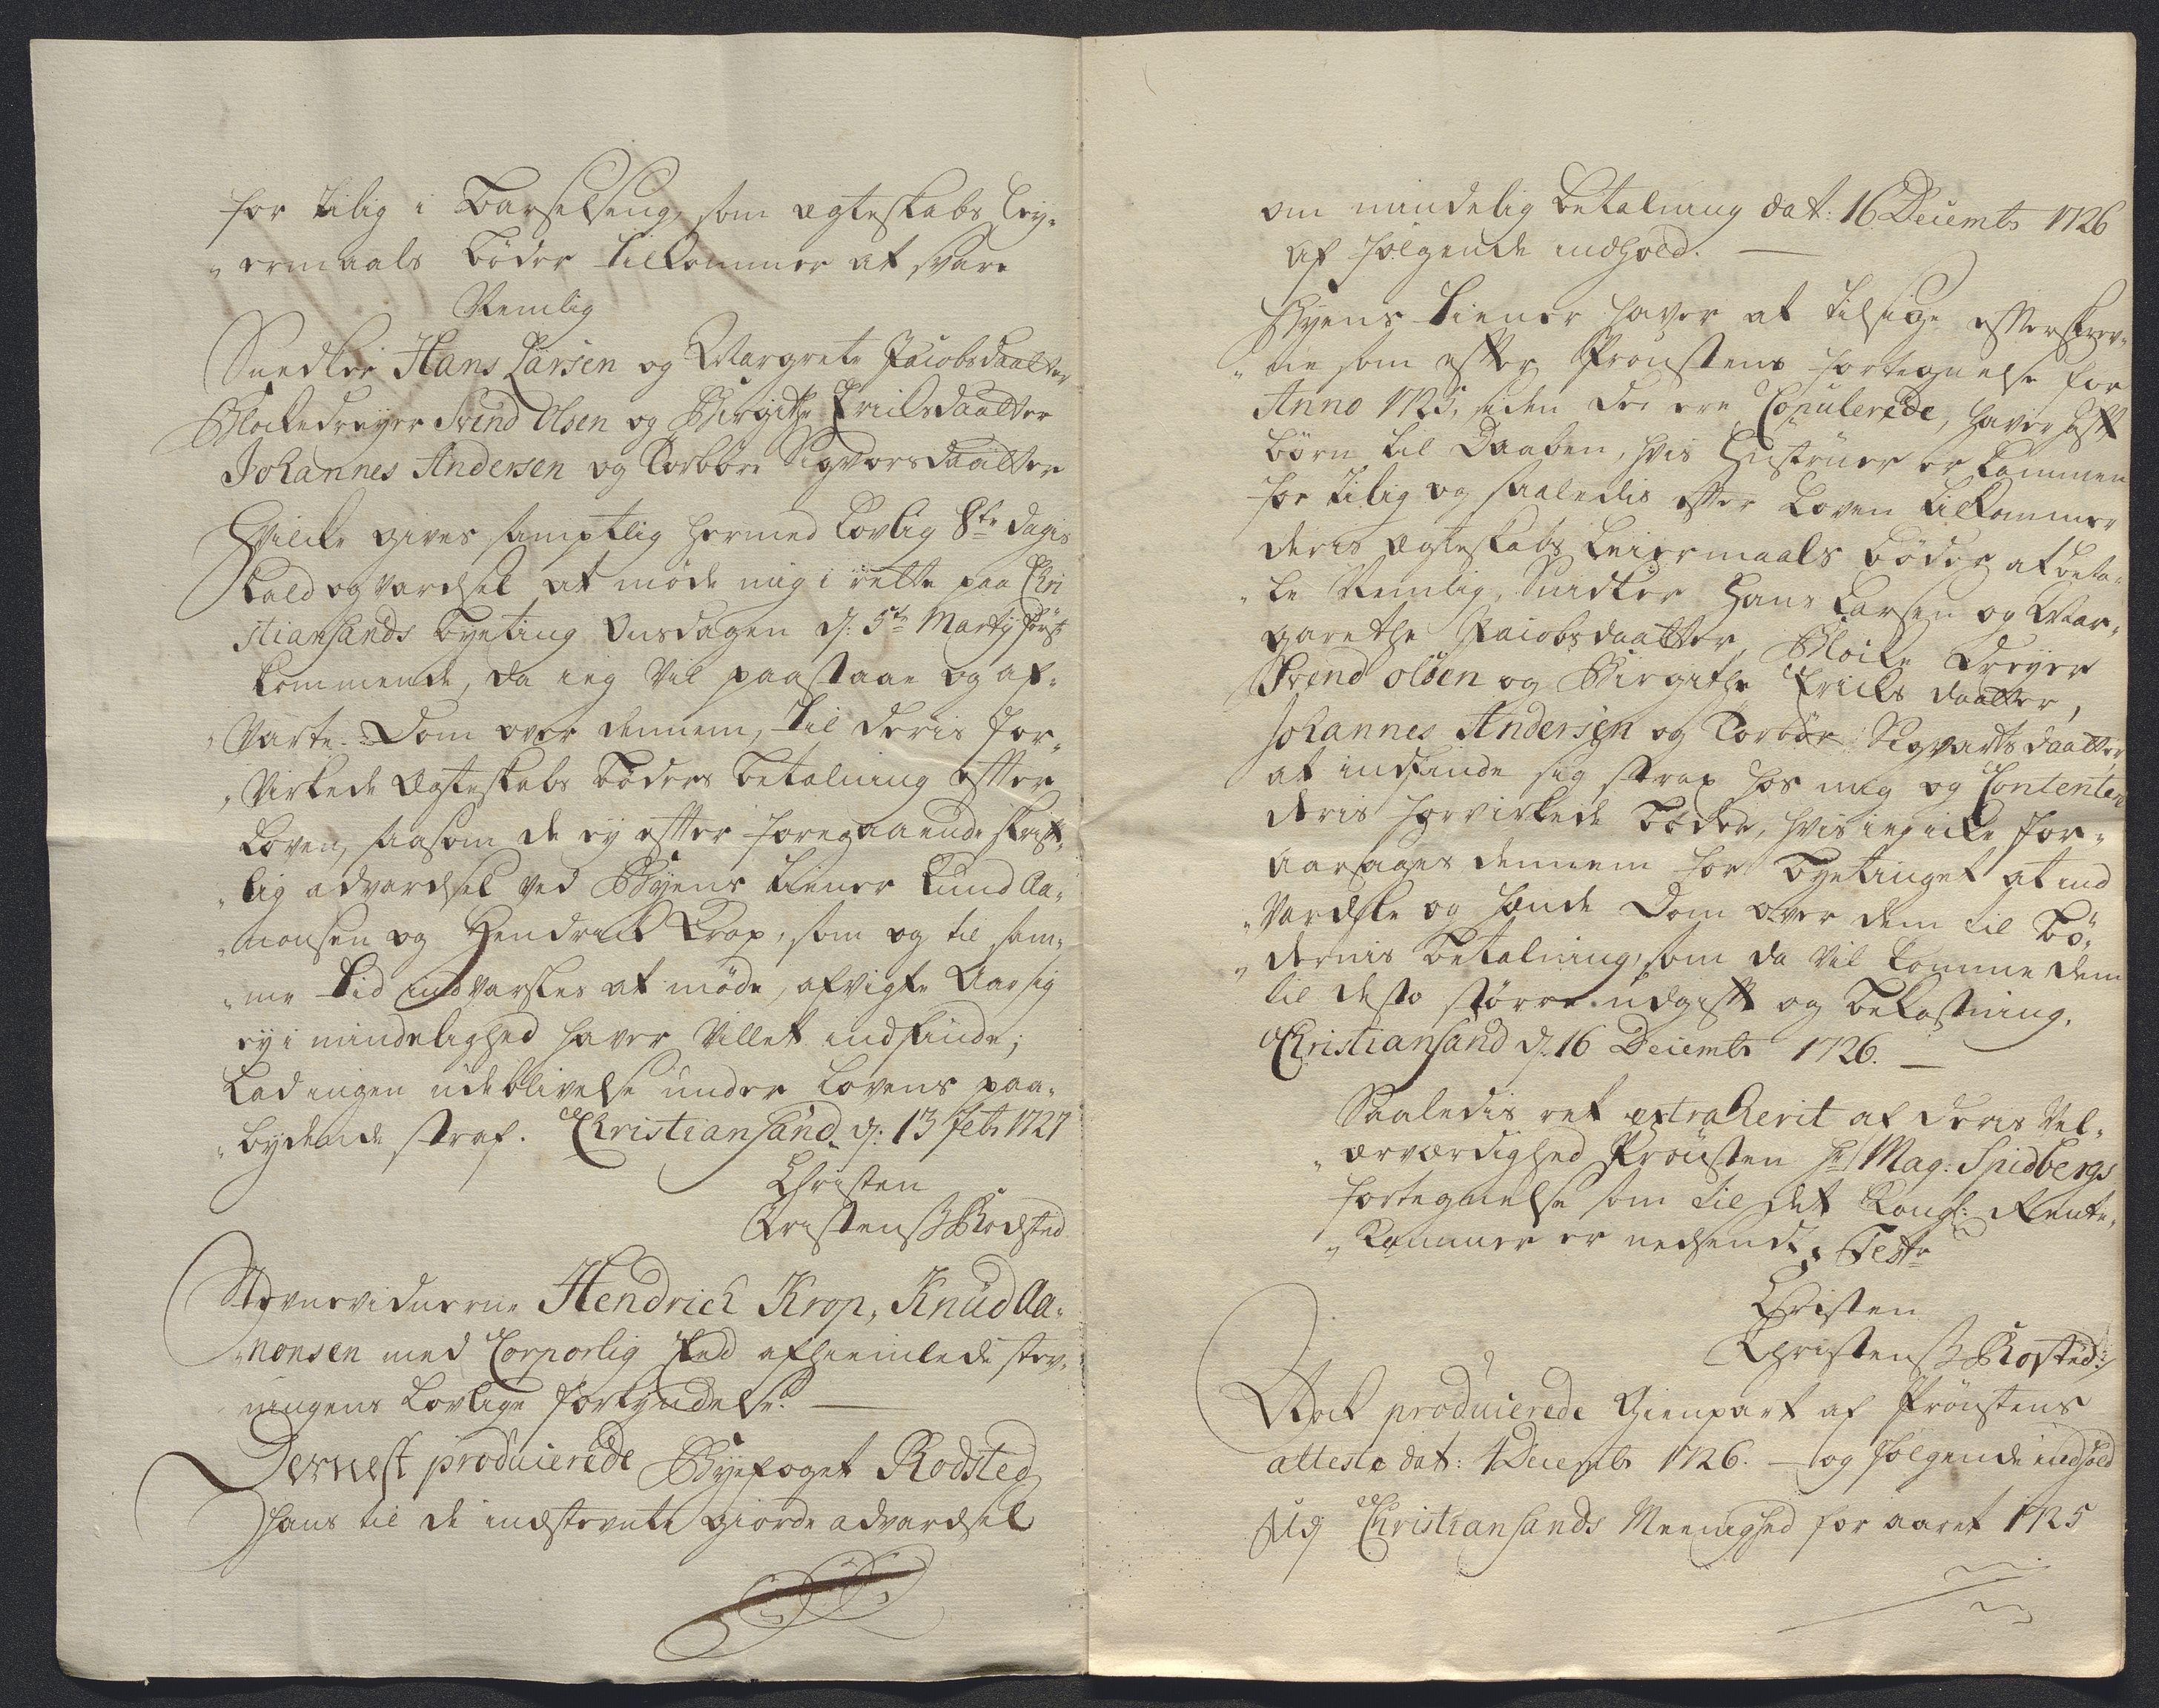 for tilig i Barselseng, som ægteskabs Ley-
„ermaals bøder tilkommer at svare
Nemlig
Snedker Hans Larsen og Margrete Jacobsdaatter
Blockedreyer Svend Olsen og Birgithe Ericksdaatter
Johannes Andersen og Torbör Sigvorsdaatter
Hvilcke gives samptlig hermed Lovlig 8te dagis
Kald og Vardsel at møde mig i rette paa Chri
stiansands byeting Onsdagen d: 5te Martij først-
kommende, da ieg vil paastaae og af-
„varte Dom over dennem, til deris for-
„virkede Ægteskabs bøders betalning efter
Loven, saasom de ey efter foregaaende skrift-
„lig advardsel ved Byens tiener Knud Aa-
„nonsen og Hendrick Krop, som og til sam-
„me tid indvarsles at møde, afvigte Aar sig
ey i mindelighed haver villet indfinde;
Lad ingen udeblivelse under Lovens paa-
„bydende straf. Christiansand d: 13 Feb: 1727
Christen
Christenss: Rodsted
Stevnevidnerne Hendrich Krop, Knud Aa-
„nonsen med Corporlig Eed afhiemlede stev-
ningens Lovlige forkyndelse. —
Dernest producierede Byefoget Rodsted
hans til de indstevnte giorde advardsel
om mindelig betalning dat: 16 Decembr 1726
af følgende indhold. —
Byens tiener haver at tilsige efterskrev-
„ne som efter Proustens fortegnelse for
Anno 1725, siden de ere Copulerede, haver hafft
børn til Daaben, hvis Hustruer er kommen
for tilig og saaledis efter Loven tilkommer
deris ægteskabs Leiermaals bøder at beta-
„le Nemlig, Snidker Hans Larsen og Mar-
garethe Jacobsdaatter, Blocke dreyer
Svend olsen og Birgithe Ericks daatter,
Johannes Andersen og Torbör Sigvartsdaatter
at indfinde sig strax hos mig og Contentere
deris forvirkede bøder, hvis ieg icke for-
aarsages dennem for byetinget at ind
„vardsle og hende Dom over dem til bø-
„dernis betalning, som da vil komme dem
til desto større udgift og bekostning.
Christiansand d: 16 Decembr 1726. —
Saaledis ret extraherit af deris Vel-
„ærværdighed Prousten Hr Mag: Spidbergs
fortegnelse som til det Kongl: Rente-
„Kammer er nedsendt, Teste
Christen
Christenss: Rosted
Nock producierede Gienpart af Proustens
atteste dat: 4 Decembr 1726. — og følgende indhold
Udj Christiansands Meenighed for aaret 1725